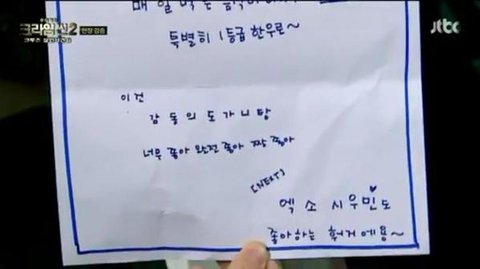 크라임씬2
현장 검증
jtbc
매일 먹는
특별히 1등급 한우로~
이건
감동의 도가니탕
너무 좋아 완전 좋아 짱 좋아
[NEXT]
엑소 시우민♥도
좋아하는 헝거에용~